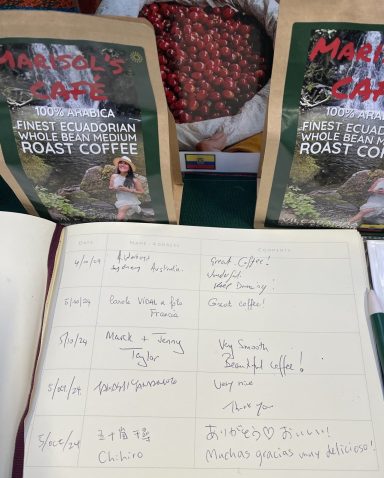 MARISOL'S
CAFÉ
100% ARABICA
FINEST ECUADORIAN
WHOLE BEAN MEDIUM
ROAST COFFEE
MARISOL'S
CAFÉ
100% ARABICA
FINEST ECUADORIAN
WHOLE BEAN MEDIUM
ROAST COFFEE
DATE NAME · ADDRESS COMMENTS
4/10/24 Sydney Australia. Great Coffee!
Wonderful.
Keep Brewing!
5/10/24 Carole Great coffee!
Francia
5/10/24 Marck + Jenny Very Smooth
Taylor Beautiful coffee!
5/OCT/24. Very nice
Thank you
5/OCT/24 五十嵐 千尋 ありがとう♡ おいしい!
Chihiro Muchas gracias muy delicioso!